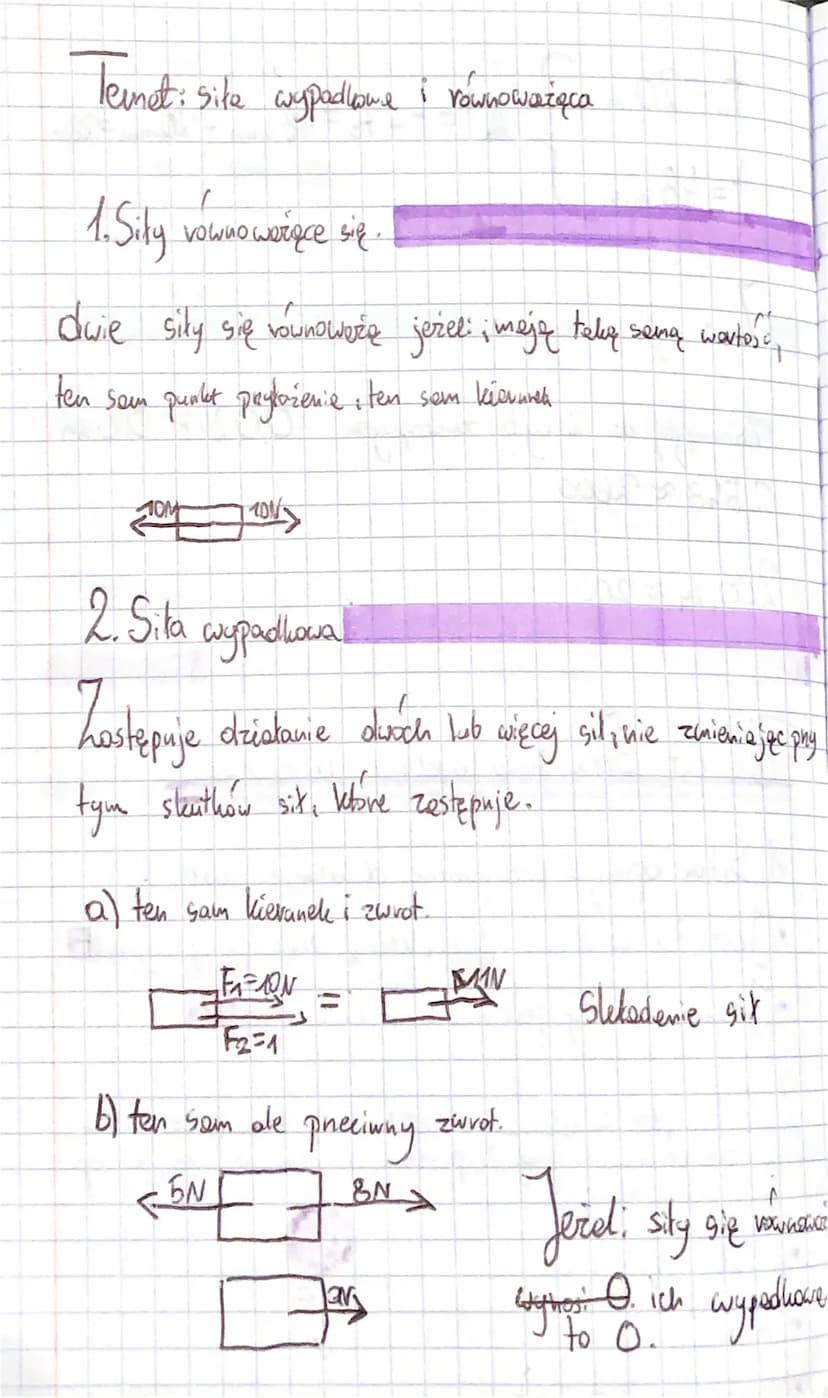 Temat: siła wypadkowa i równoważąca
1. Siły równoważące się.
dwie siły się równoważą jeżeli: mają taką samą wartość,
ten sam punkt przyłożenia, ten sam kierunek
10N 10N
2. Siła wypadkowa
Zastępuje działanie dwóch lub więcej sił, nie zmieniając przy
tym skutków sił, które zastępuje.
a) ten sam kierunek i zwrot.
F1=10N = 11N Składanie sił
F2=1
b) ten sam ale przeciwny zwrot.
5N 8N Jeżeli siły się
3N ich wypadkowa
to 0.